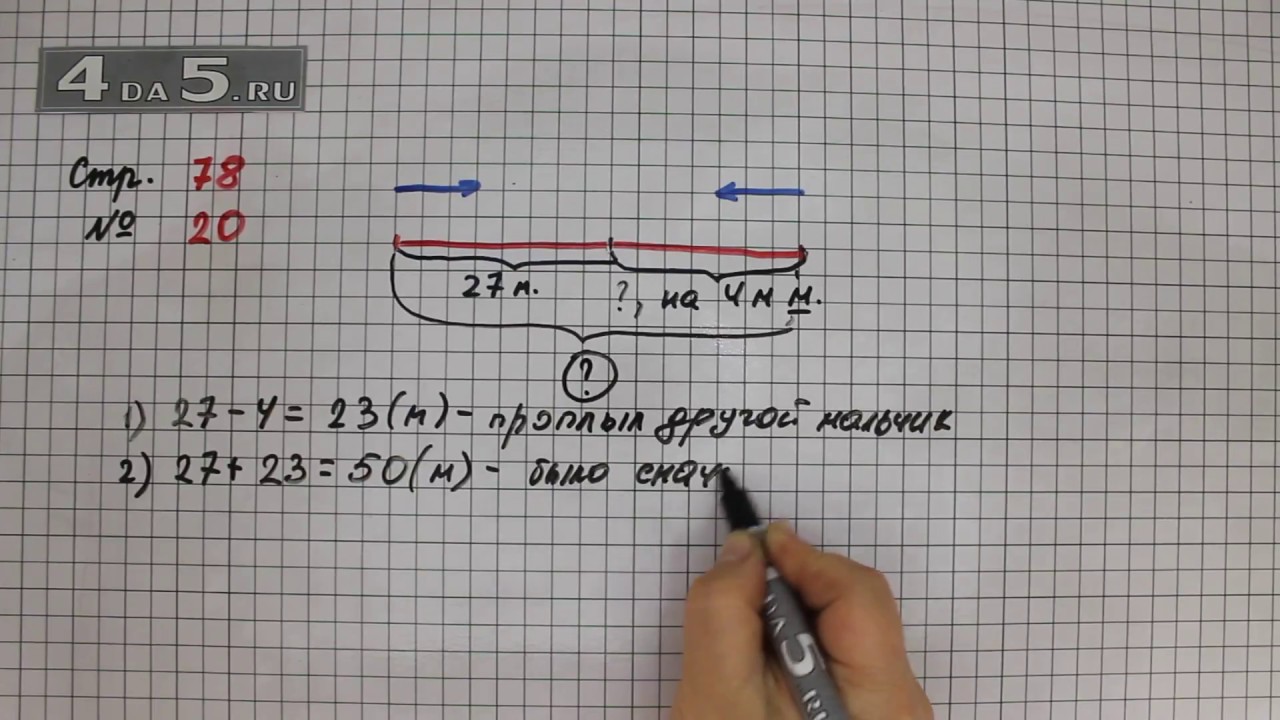 4DA5.RU
Стр. 78
№ 20
27 м.
?, на 4 м м.
?
1) 27 - 4 = 23 (м) - проплыл другой мальчик
2) 27 + 23 = 50 (м) - было снач
DA 5 RU